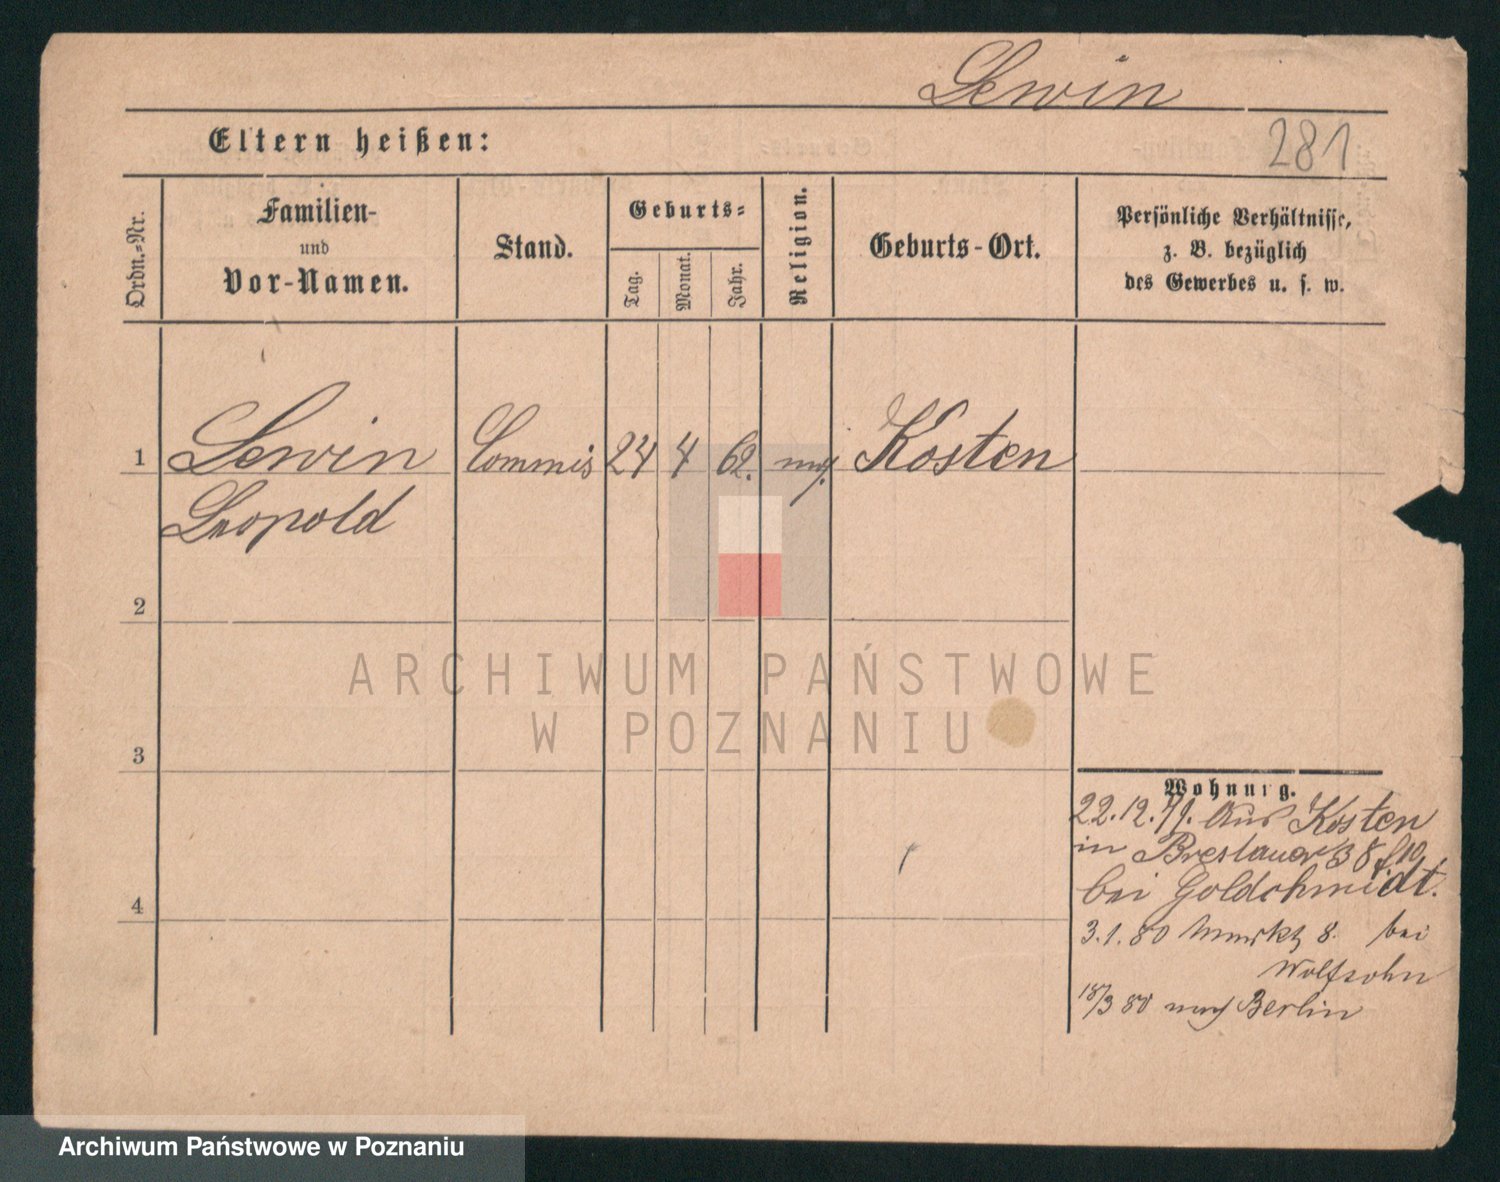 Lewin
Eltern heißen:
281
Ordn.-Nr.
Familien-
und
Vor-Namen.
Stand.
Geburts-
Tag.
Monat.
Jahr.
Religion.
Geburts-Ort.
Persönliche Verhältnisse,
z. B. bezüglich
des Gewerbes u. s. w.
1 Lewin Commis 24 4 62. Kosten
Leopold
2
3
4
Wohnung.
22.12.79. aus Kosten
in Breslauer
bei Goldschmidt.
3.1.80 Markt 8. bei
Wolfsohn
18/3 80 nach Berlin
ARCHIWUM PAŃSTWOWE
W POZNANIU
Archiwum Państwowe w Poznaniu